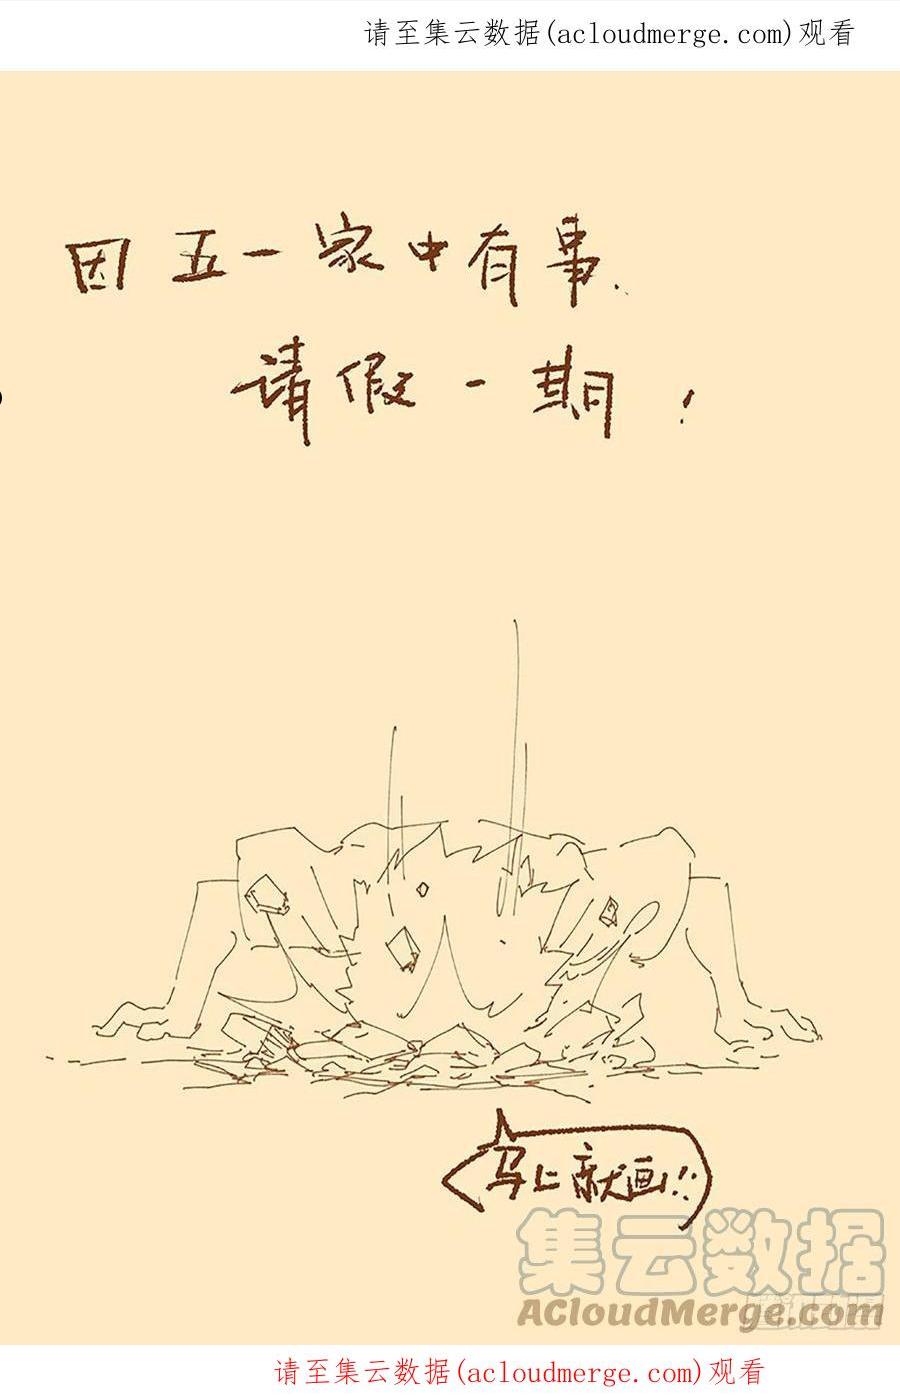 请至集云数据(acloudmerge.com)观看
因五一家中有事.
请假一期!
马上就画!!
集云数据
ACloudMerge.com
请至集云数据(acloudmerge.com)观看